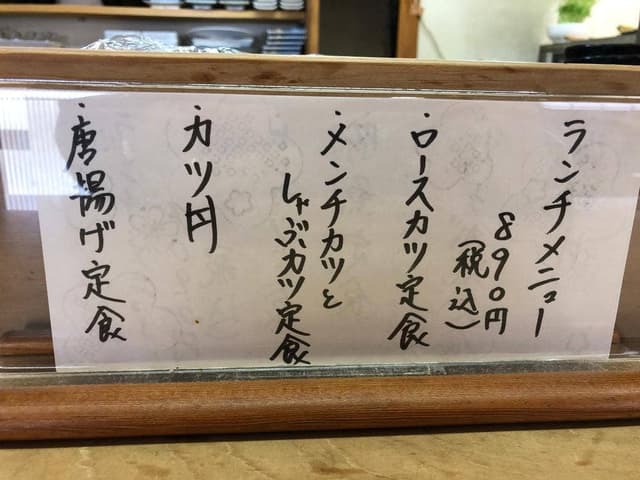 ランチメニュー
890円
(税込)
・ロースカツ定食
・メンチカツと
しゃぶカツ定食
・カツ丼
・唐揚げ定食